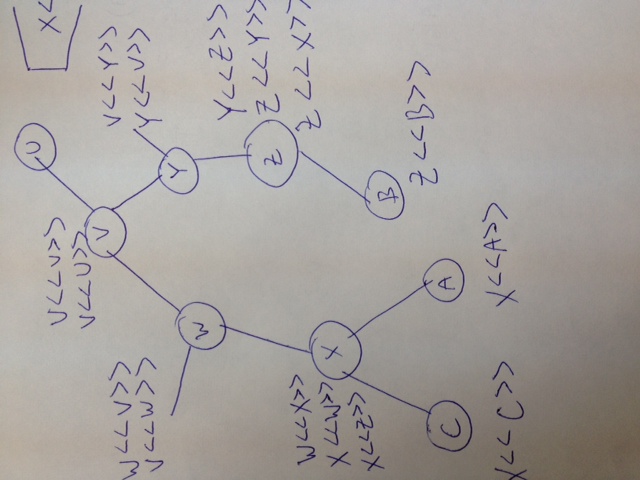 U
X<
V<<V>>
V<<U>>
V
V<<Y>>
Y<<V>>
W<<V>>
V<<W>>
Y
W
Y<<Z>>
Z<<Y>>
Z<<X>>
Z
W<<X>>
X<<W>>
X<<Z>>
X
B
Z<<B>>
C
A
X<<C>>
X<<A>>